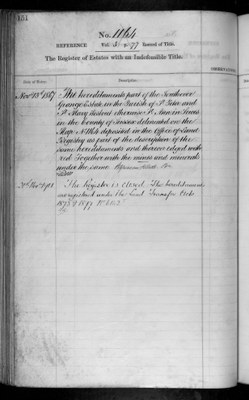 164
No. 1164
REFERENCE Vol. 3 p. 77 Record of Title.
The Register of Estates with an Indefeasible Title.
Date of Entry. Description.
Nov 13th 1867 The hereditaments part of the Southover
Grange Estate in the Parish of St Peter and
St Mary Westout otherwise St Ann in Lewes
in the County of Sussex delineated on the
Map deposited in the Office of Land
Registry as part of the description of the
same hereditaments and thereon edged with
red Together with the mines and minerals
under the same
The Register is closed. The hereditaments
are registered under the Land Transfer Acts
1875 &